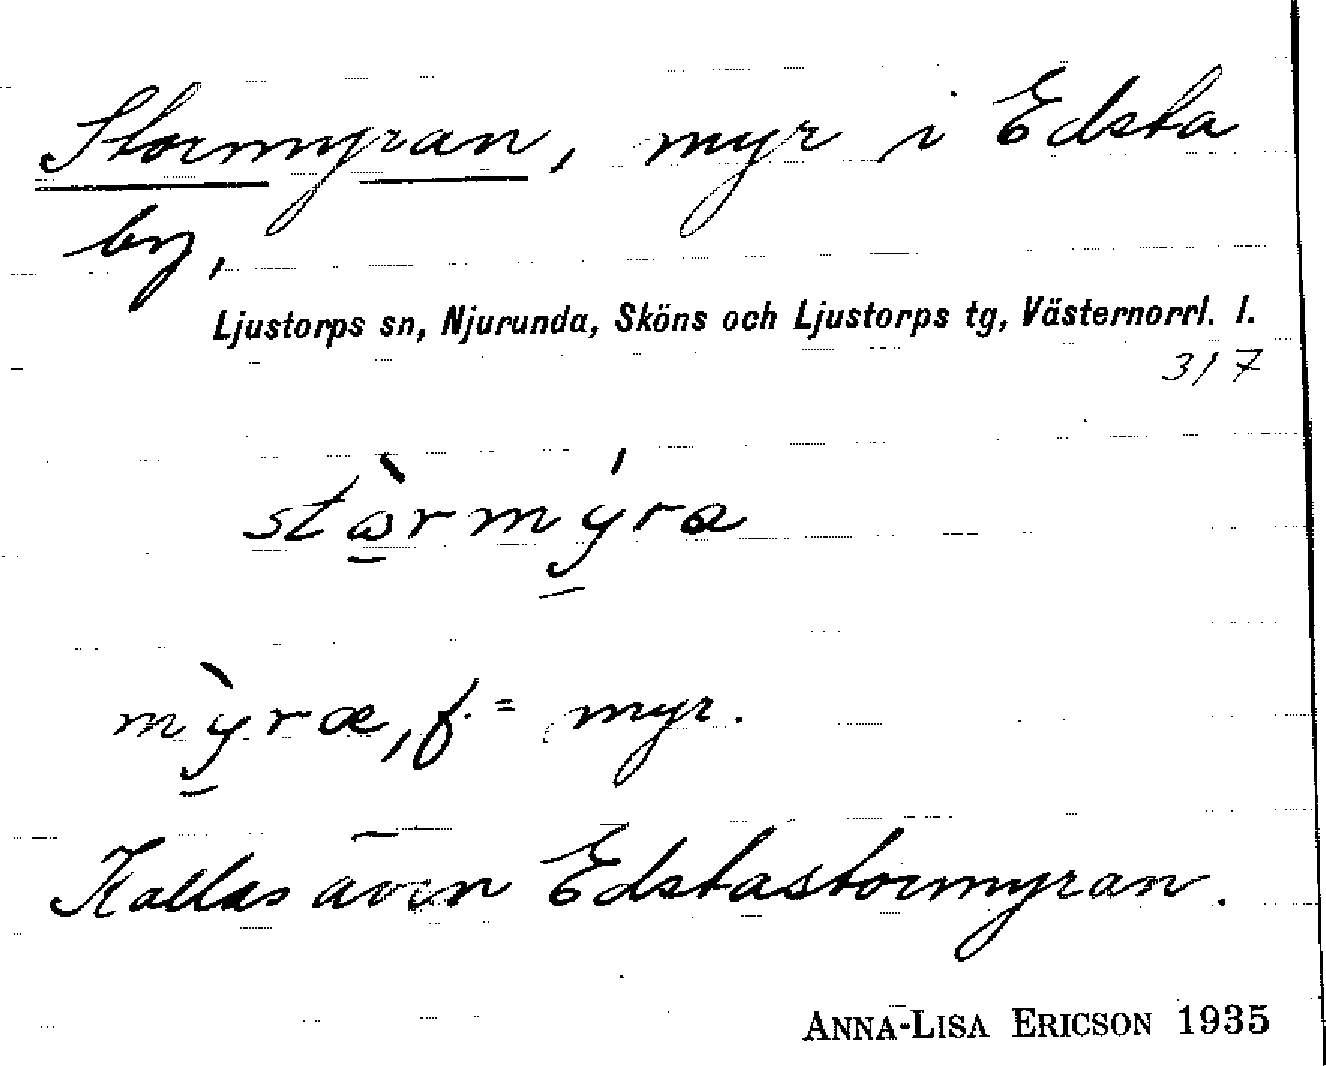 Stormyran, myr i Edsta
by,
Ljustorps sn, Njurunda, Sköns och Ljustorps tg, Västernorrl. l.
317
stὼrmýra
mỳræ, f. = myr.
Kallas även Edstastormyran.
ANNA-LISA ERICSON 1935